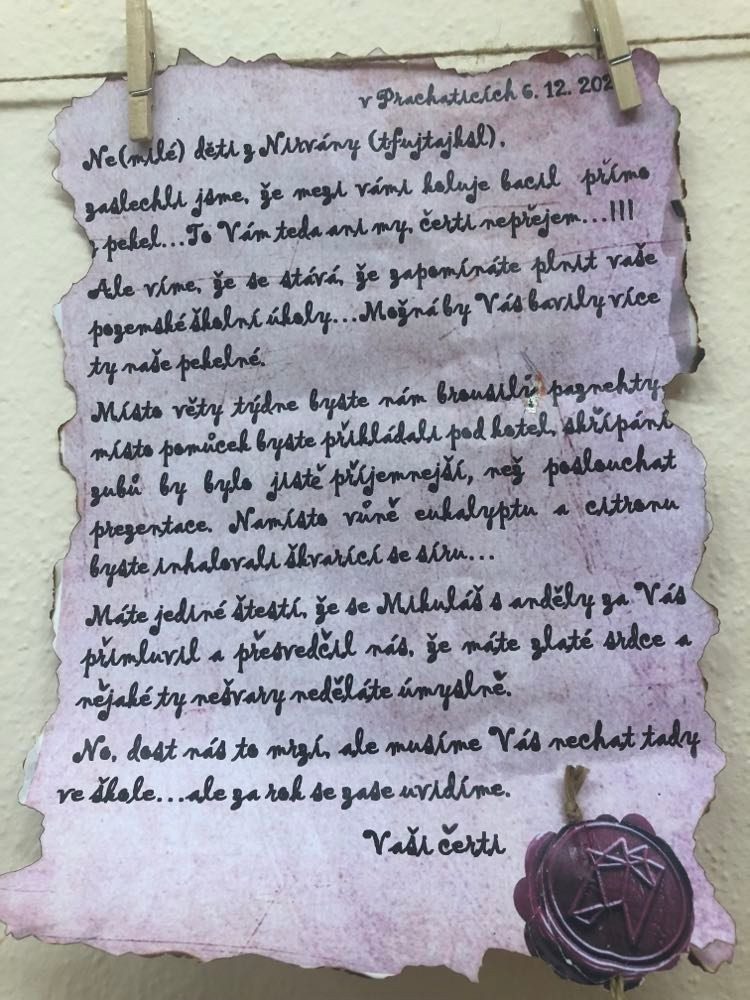 v Prachaticích 6. 12. 202
Ne(milé) děti z Nirvány (tfujtajksl),
zaslechli jsme, že mezi vámi koluje bacil přímo
z pekel...To Vám teda ani my, čerti nepřejem...!!!
Ale víme, že se stává, že zapomínáte plnit vaše
pozemské školní úkoly...Možná by Vás bavily více
ty naše pekelné.
Místo věty týdne byste nám brousili paznehty,
místo pomůcek byste přikládali pod kotel, skřípání
zubů by bylo jistě příjemnejší, než poslouchat
prezentace. Namísto vůně eukalyptu a citronu
byste inhalovali škvařící se síru...
Máte jediné štestí, že se Mikuláš s anděly za Vás
přimluvil a přesvedčil nás, že máte zlaté srdce a
nějaké ty nešvary neděláte úmyslně.
No, dost nás to mrzí, ale musíme Vás nechat tady
ve škole...ale za rok se zase uvidíme.
Vaši čerti